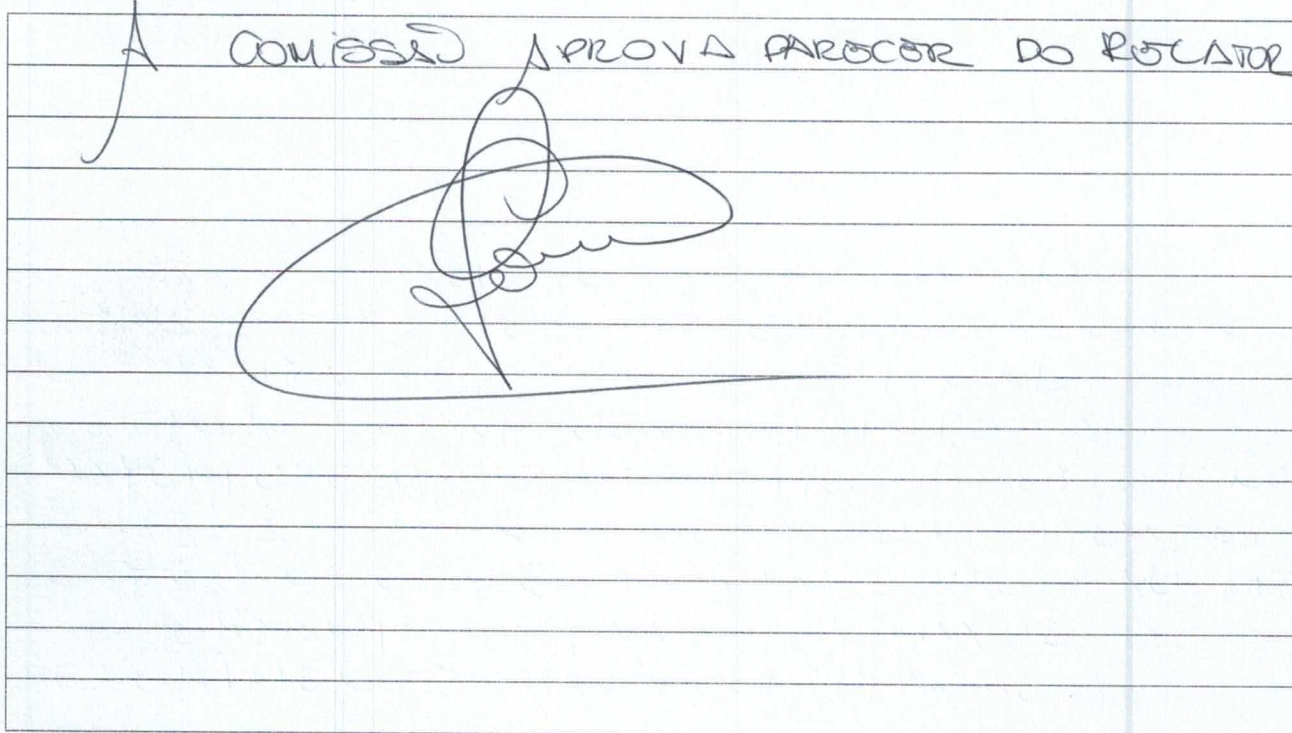 A COMISSÃO APROVA PARECER DO RELATOR